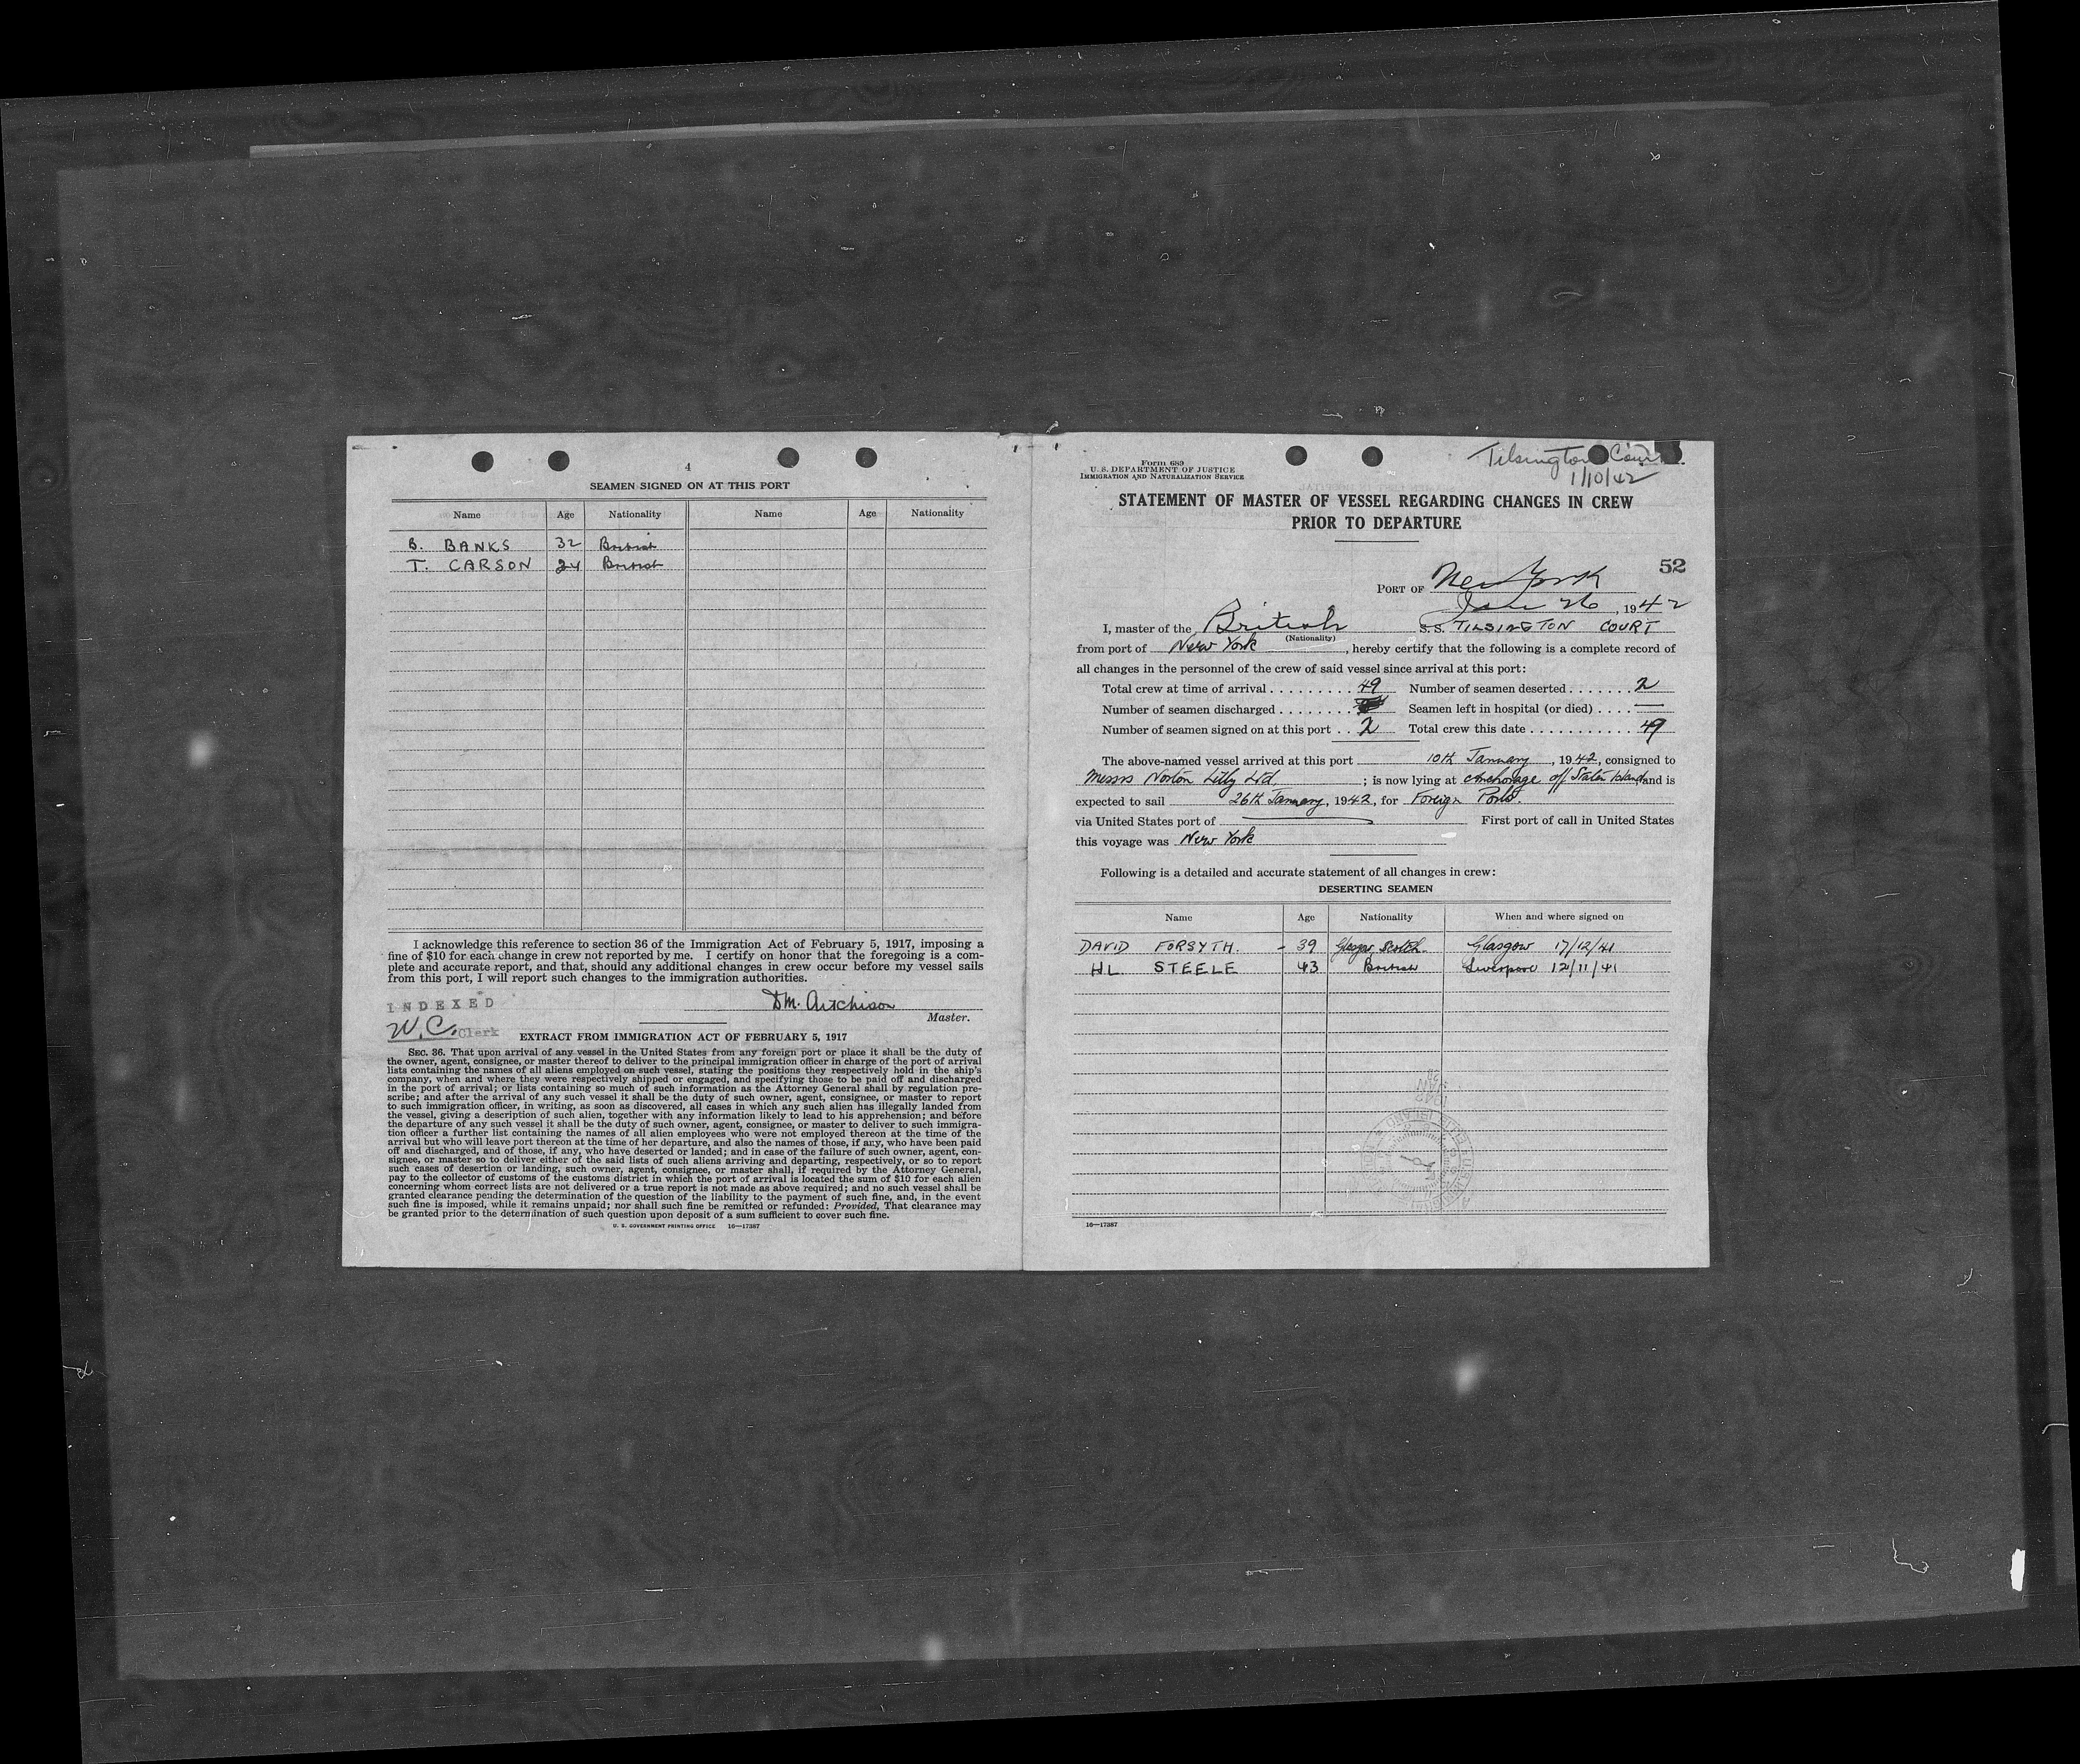 4
SEAMEN SIGNED ON AT THIS PORT
Name Age Nationality Name Age Nationality
B. BANKS 32 British
T. CARSON 24 British
I acknowledge this reference to section 36 of the Immigration Act of February 5, 1917, imposing a
fine of $10 for each change in crew not reported by me. I certify on honor that the foregoing is a com-
plete and accurate report, and that, should any additional changes in crew occur before my vessel sails
from this port, I will report such changes to the immigration authorities.
INDEXED
DM. Aitchison
Master.
W.C. Clerk
EXTRACT FROM IMMIGRATION ACT OF FEBRUARY 5, 1917
SEC. 36. That upon arrival of any vessel in the United States from any foreign port or place it shall be the duty of
the owner, agent, consignee, or master thereof to deliver to the principal immigration officer in charge of the port of arrival
lists containing the names of all aliens employed on such vessel, stating the positions they respectively hold in the ship's
company, when and where they were respectively shipped or engaged, and specifying those to be paid off and discharged
in the port of arrival; or lists containing so much of such information as the Attorney General shall by regulation pre-
scribe; and after the arrival of any such vessel it shall be the duty of such owner, agent, consignee, or master to report
to such immigration officer, in writing, as soon as discovered, all cases in which any such alien has illegally landed from
the vessel, giving a description of such alien, together with any information likely to lead to his apprehension; and before
the departure of any such vessel it shall be the duty of such owner, agent, consignee, or master to deliver to such immigra-
tion officer a further list containing the names of all alien employees who were not employed thereon at the time of the
arrival but who will leave port thereon at the time of her departure, and also the names of those, if any, who have been paid
off and discharged, and of those, if any, who have deserted or landed; and in case of the failure of such owner, agent, con-
signee, or master so to deliver either of the said lists of such aliens arriving and departing, respectively, or so to report
such cases of desertion or landing, such owner, agent, consignee, or master shall, if required by the Attorney General,
pay to the collector of customs of the customs district in which the port of arrival is located the sum of $10 for each alien
concerning whom correct lists are not delivered or a true report is not made as above required; and no such vessel shall be
granted clearance pending the determination of the question of the liability to the payment of such fine, and, in the event
such fine is imposed, while it remains unpaid; nor shall such fine be remitted or refunded: Provided, That clearance may
be granted prior to the determination of such question upon deposit of a sum sufficient to cover such fine.
U. S. GOVERNMENT PRINTING OFFICE 16—17387
Form 689
U. S. DEPARTMENT OF JUSTICE
IMMIGRATION AND NATURALIZATION SERVICE
Tilsington Cour
1/10/42
STATEMENT OF MASTER OF VESSEL REGARDING CHANGES IN CREW
PRIOR TO DEPARTURE
52
PORT OF New York
Jan 26, 1942
I, master of the British S.S. TILSINGTON COURT
(Nationality)
from port of New York, hereby certify that the following is a complete record of
all changes in the personnel of the crew of said vessel since arrival at this port:
Total crew at time of arrival . . . . . . . . . 49 Number of seamen deserted . . . . . . . 2
Number of seamen discharged . . . . . . . . Seamen left in hospital (or died) . . . . —
Number of seamen signed on at this port . . 2 Total crew this date . . . . . . . . . . . 49
The above-named vessel arrived at this port 10th January, 1942, consigned to
Messrs Norton Lilly Ltd ; is now lying at Anchorage off Staten Island and is
expected to sail 26th January, 1942, for Foreign Ports.
via United States port of — First port of call in United States
this voyage was New York
Following is a detailed and accurate statement of all changes in crew:
DESERTING SEAMEN
Name Age Nationality When and where signed on
DAVID FORSYTH. - 39 Scotch Glasgow 17/12/41
HL STEELE 43 British Liverpool 12/11/41
16—17387